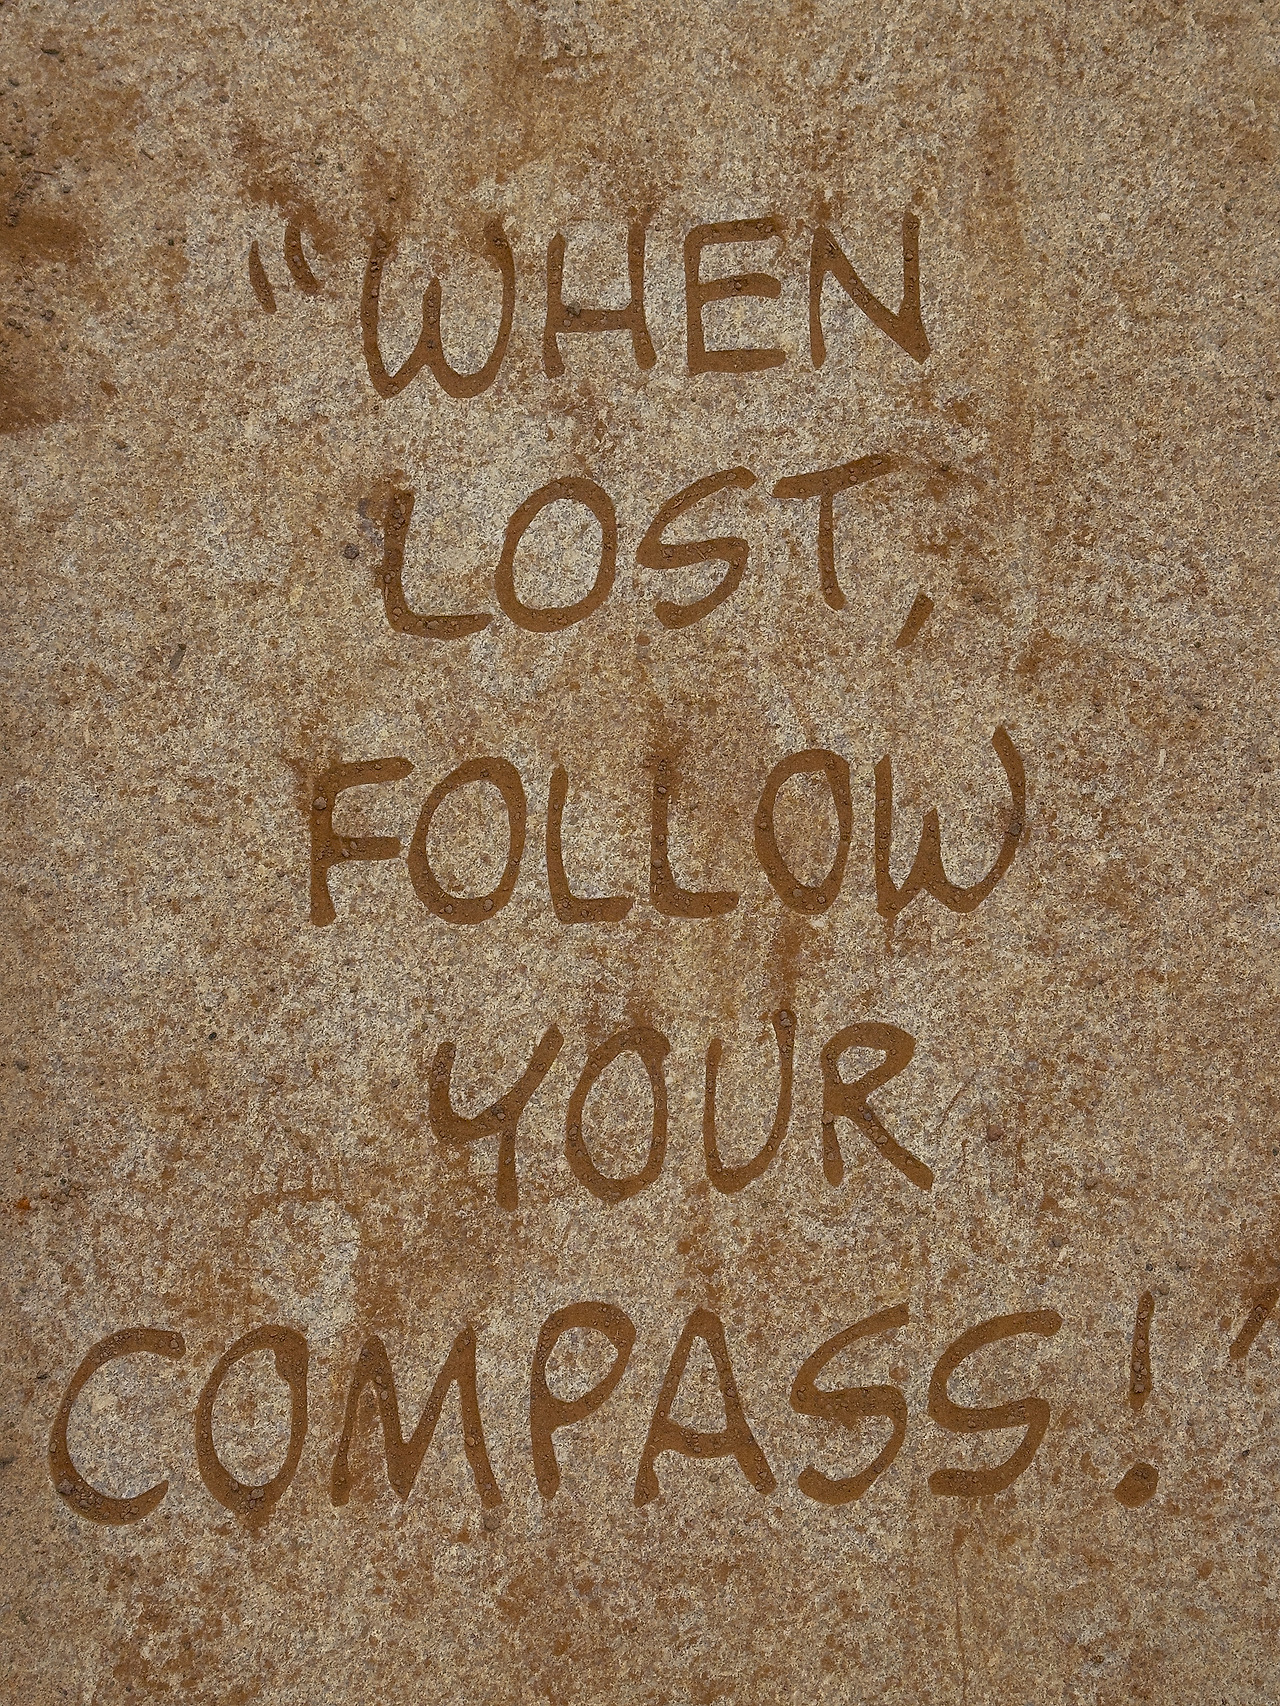 "WHEN
LOST,
FOLLOW
YOUR
COMPASS!"